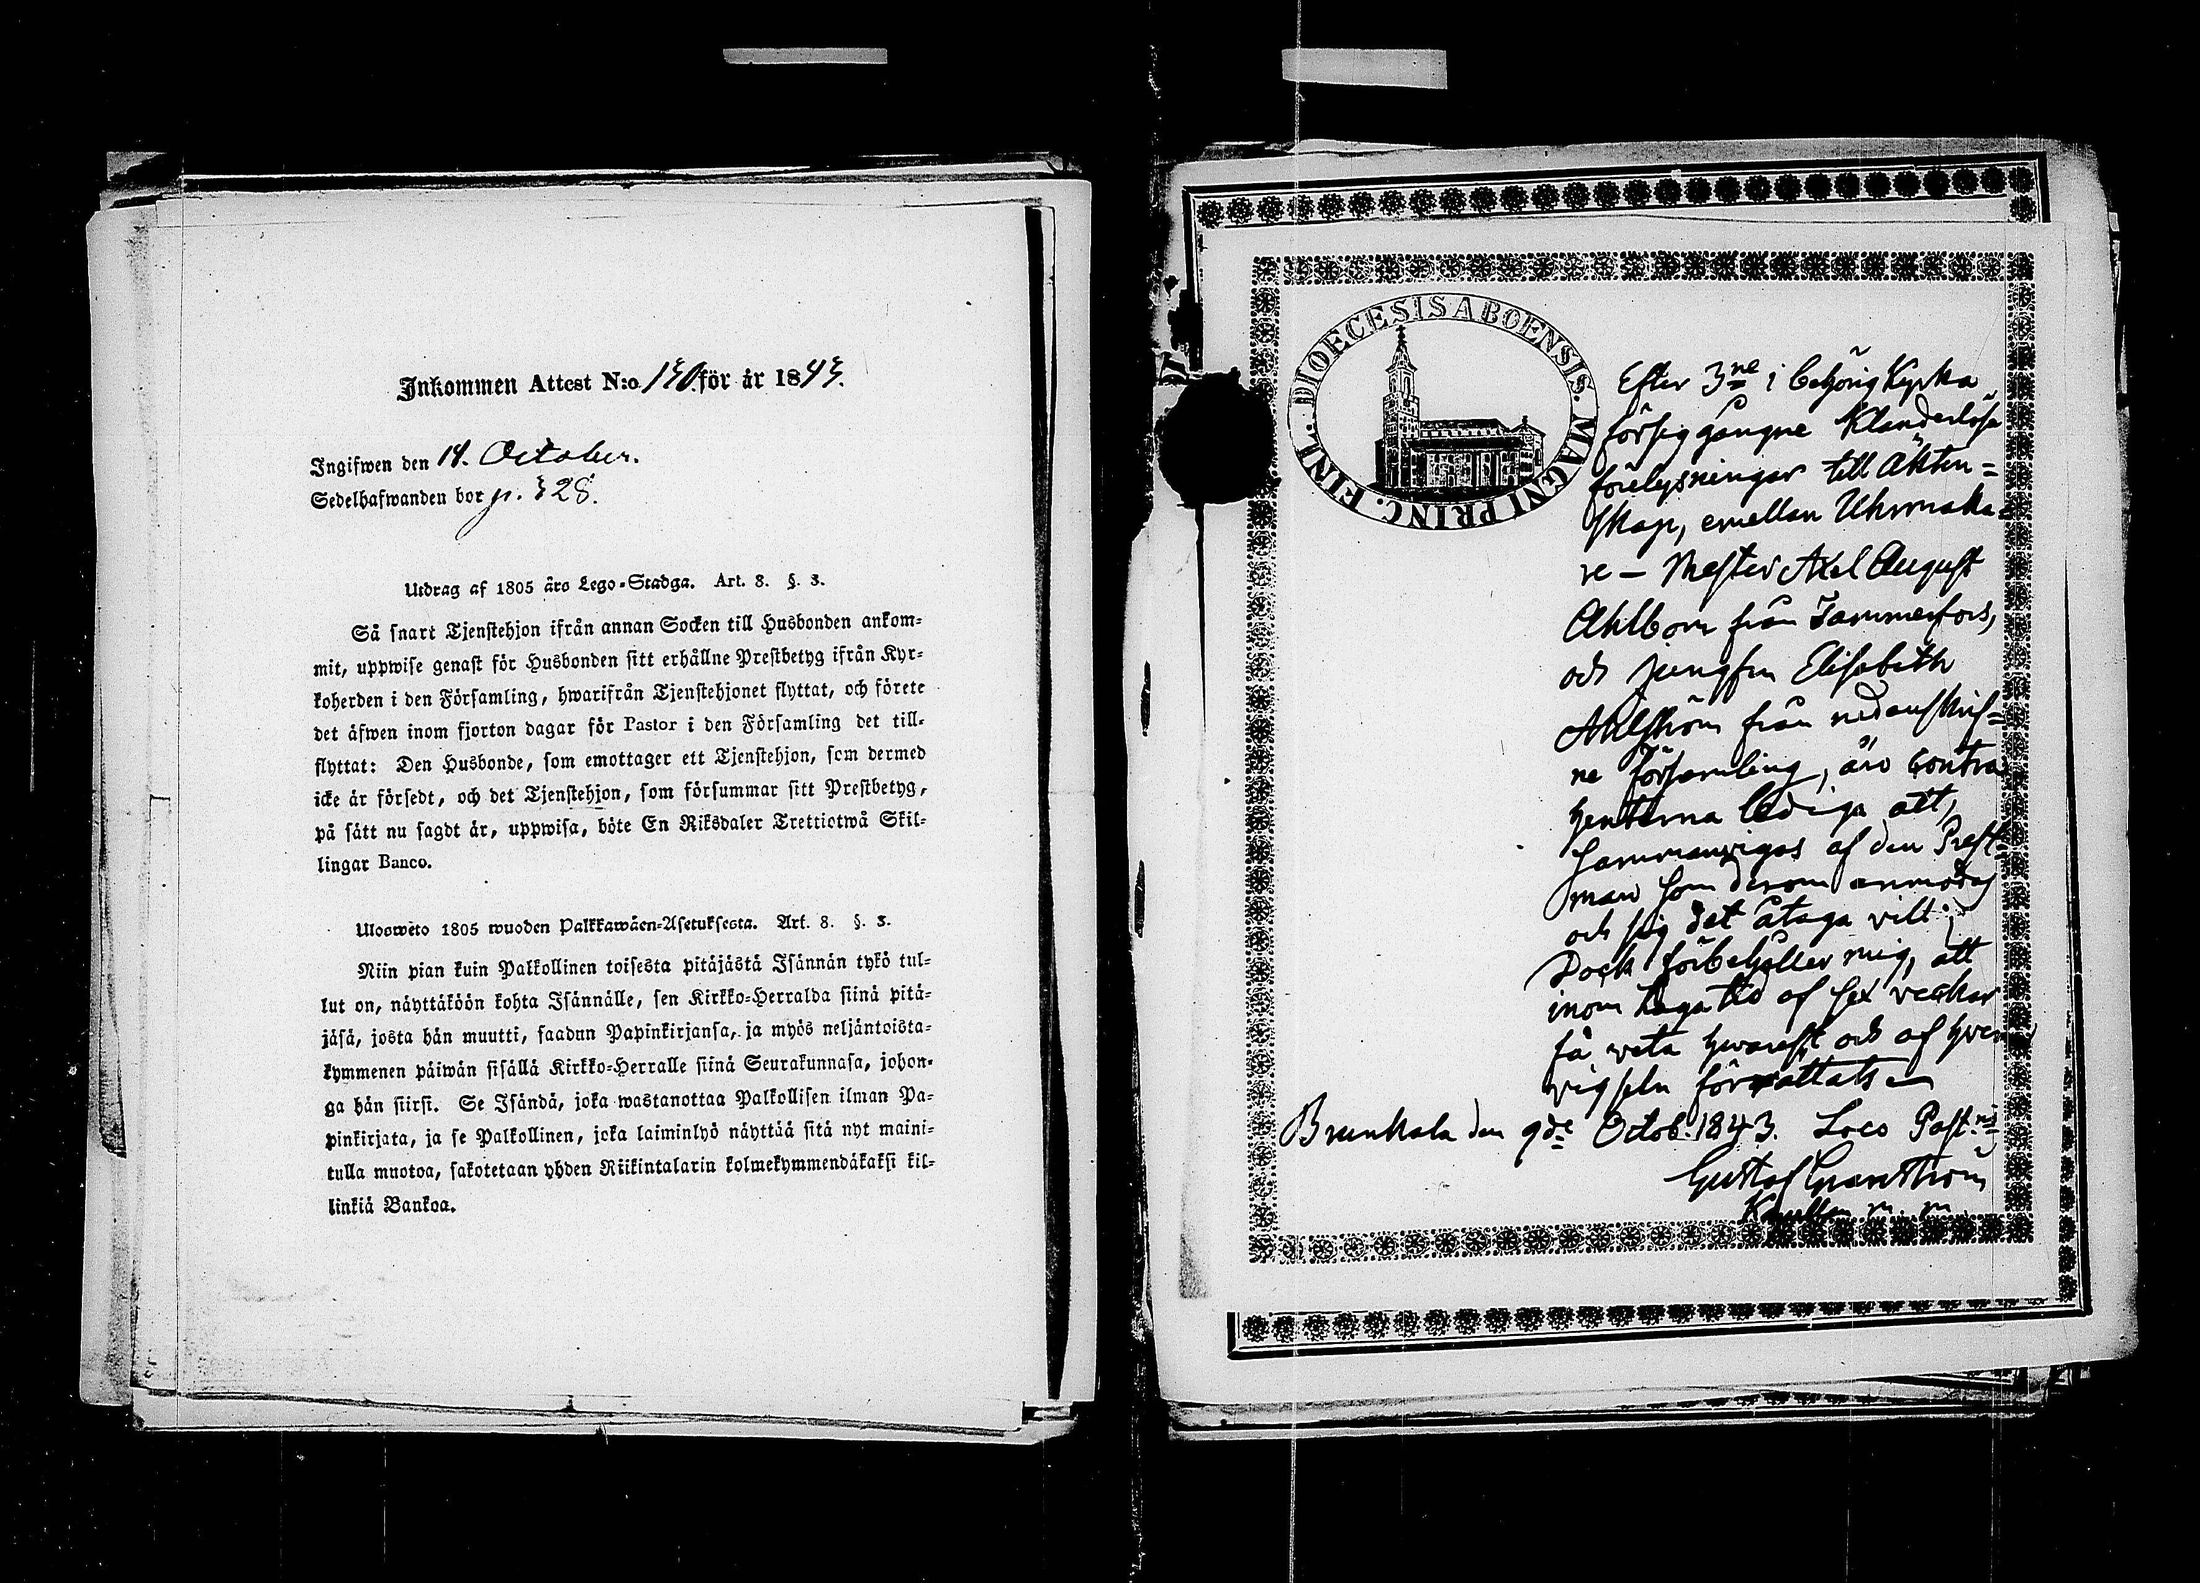 Inkommen Attest N:o 130. för år 1843.
Ingifwen den 14. October.
Sedelhafwanden bor p. 328.
Utdrag af 1805 års Lego-Stadga. Art. 8. §. 3.
Så snart Tjenstehjon ifrån annan Socken till Husbonden ankom-
mit, uppwise genast för Husbonden sitt erhållne Prestbetyg ifrån Kyr-
koherden i den Församling, hwarifrån Tjenstehjonet flyttat, och förete
det äfwen inom fjorton dagar för Pastor i den Församling det till-
flyttat: Den Husbonde, som emottager ett Tjenstehjon, som dermed
icke är försedt, och det Tjenstehjon, som försummar sitt Prestbetyg,
på sätt nu sagdt är, uppwisa, böte En Riksdaler Trettiotwå Skil-
lingar Banco.
Uloswéto 1805 wuoden Palkkawäen-Asetuksesta. Art. 8. §. 3.
Niin pian kuin Palkollinen toisesta pitäjästä Isännän tykö tul-
lut on, näyttäköön kohta Isännälle, sen Kirkko-Herralda siinä pitä-
jäsä, josta hän muutti, saadun Papinkirjansa, ja myös neljäntoista-
kymmenen päiwän sisällä Kirkko-Herralle siinä Seurakunnasa, johon-
ga hän siirsi. Se Isändä, joka wastanottaa Palkollisen ilman Pa-
pinkirjata, ja se Palkollinen, joka laiminlyö näyttää sitä nyt maini-
tulla muotoa, sakotetaan yhden Riikintalarin kolmekymmendäkaksi kil-
linkiä Bankoa.
DIOECESIS ABOENSIS. MAGNI PRINC. FINL.
Efter 3ne i behörig Kyrka
försiggångne Klanderlösa
förelysningar till Äkten=
skap, emellan Uhrmaka=
re - Mester Axel August
Ahlbom från Tammerfors,
och jungfru Elisabeth
Ahlström från nedanskrif=
ne församling, äro Contra
henterna lediga att,
sammanvigas af den Prest=
man som derom anmodas
och sig det åtaga vill;
Dock förbehåller mig, att
inom Laga tid af sex veckor
få veta hvarest och af hvem
vigseln förrättats
Brunkala den 9de Octob. 1843. Loco Past:ris
Gustaf Granström
m. m.